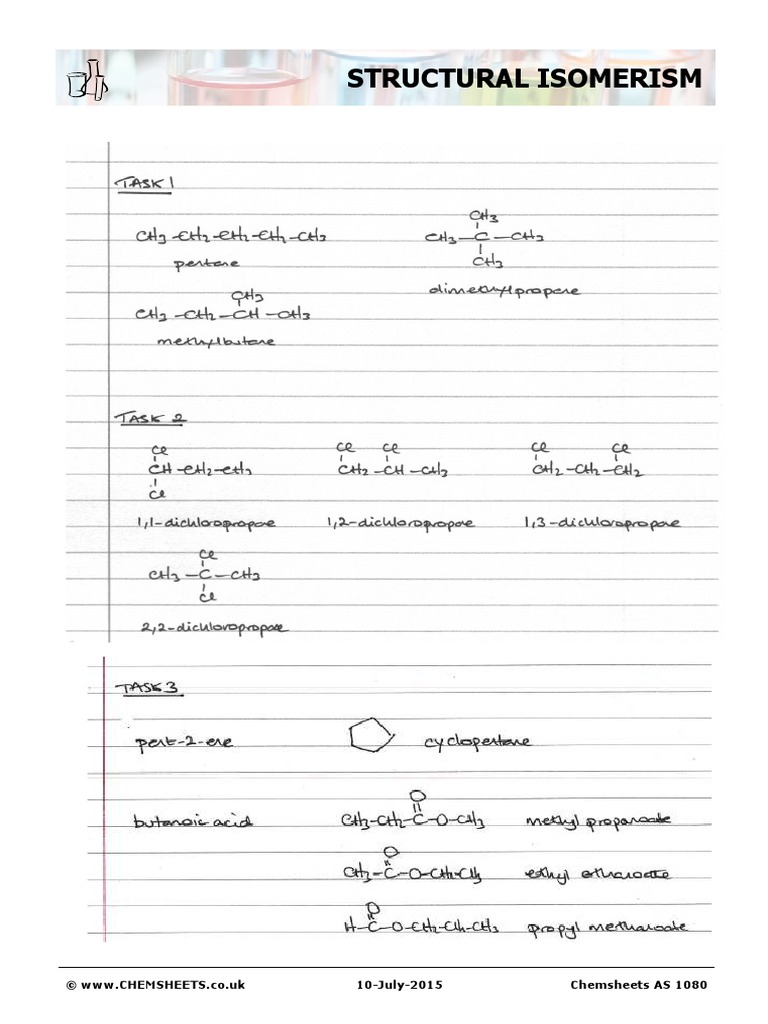 STRUCTURAL ISOMERISM
TASK 1
CH3 -CH2-CH2-CH2-CH3
pentane
CH3
CH3-C-CH3
CH3
dimethylpropane
CH3
CH3 -CH2-CH-CH3
methylbutane
TASK 2
Cl
CH-CH2-CH3
Cl
1,1-dichloropropane
Cl Cl
CH2-CH-CH3
1,2-dichloropropane
Cl Cl
CH2-CH2-CH2
1,3-dichloropropane
Cl
CH3-C-CH3
Cl
2,2-dichloropropane
TASK 3
pent-2-ene
cyclopentane
butanoic acid
O
CH3-CH2-C-O-CH3 methyl propanoate
O
CH3-C-O-CH2-CH3 ethyl ethanoate
O
H-C-O-CH2-CH2-CH3 propyl methanoate
© www.CHEMSHEETS.co.uk 10-July-2015 Chemsheets AS 1080